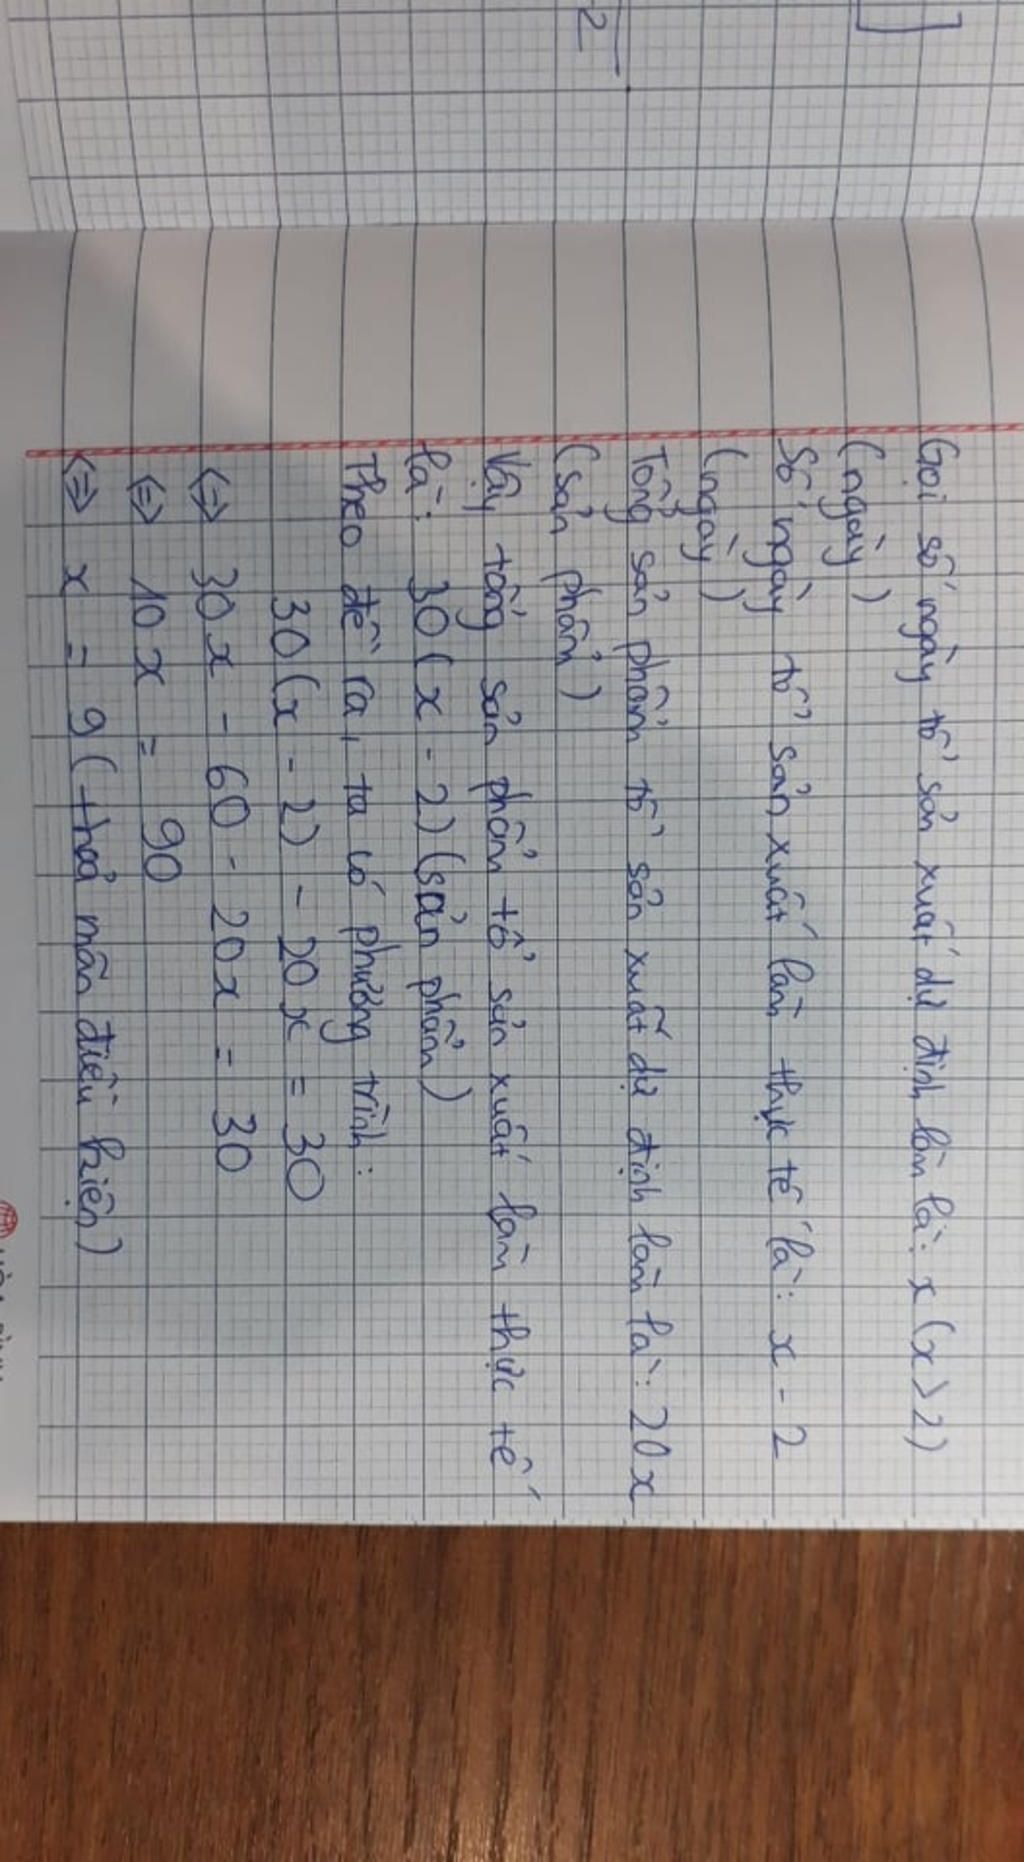 2
Gọi số ngày tổ sản xuất dự định làm là: x (x > 2)
(ngày)
Số ngày tổ sản xuất làm thực tế là: x - 2
(ngày)
Tổng sản phẩm tổ sản xuất dự định làm là: 20x
(sản phẩm)
Vậy tổng sản phẩm tổ sản xuất làm thực tế
là: 30(x - 2) (sản phẩm)
Theo đề ra, ta có phương trình:
30(x - 2) - 20x = 30
<=> 30x - 60 - 20x = 30
<=> 10x = 90
<=> x = 9 (thoả mãn điều kiện)